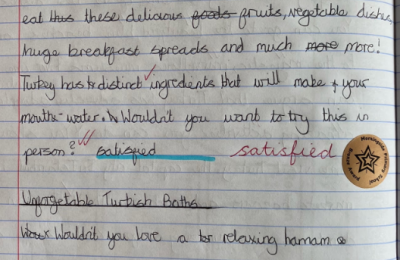 eat thus these delicious foods fruits, vegetable dishes
huge breakfast spreads and much more more!
Turkey has distinct ingredients that will make your
mouth water. Wouldn't you want to try this in
person? satisfied satisfied
Unforgetable Turkish Baths
Wouldn't you love a relaxing hamam